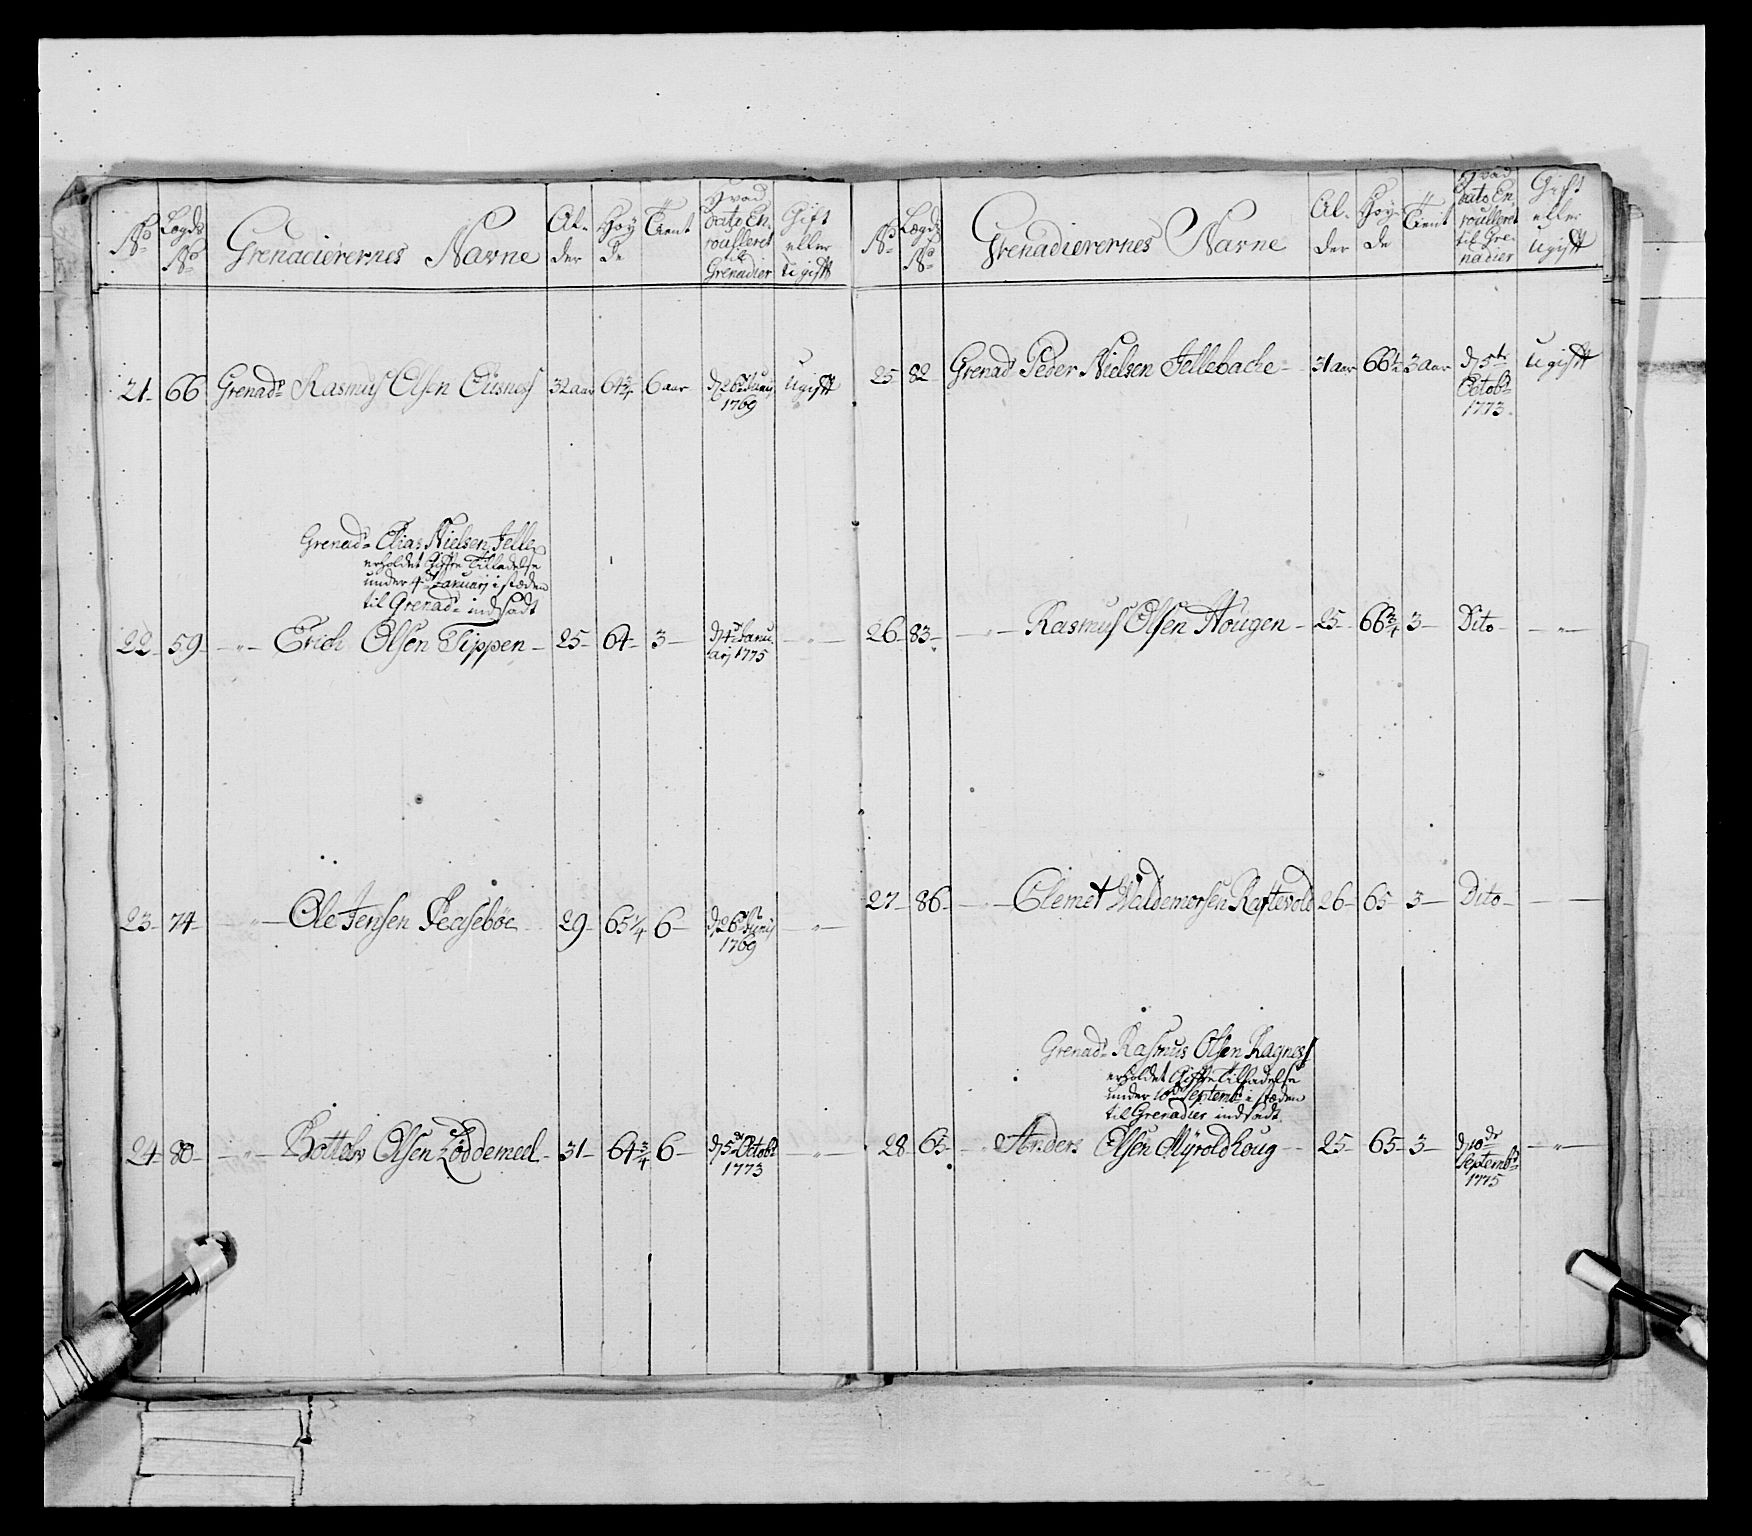 No Lægds No Grenadierernes Navne Al- der Høy de Tient Hvad dato En- roulleret til Grenadier Gift eller Ugifft
21 66 Grenadr Rasmus Olsen 32 aar 64 3/4 6 aar d 26 Junij 1769 Ugifft
Grenadr Elias Nielsen Jelle
erholdet Giffte Tilladelse
under 4de Januarj i stæden
til Grenadr indsadt
22 59 -"- Erich Olsen Tippen 25 64 3 d 4de Janu-
arj 1775 -"-
23 74 -"- Ole Jensen 29 65 1/4 6 d 26 Junij
1769 -"-
24 80 -"- Olsen 31 64 3/4 6 d 5te Octobr
1773 -"-
No Lægds No Grenadierernes Navne Al- der Høy- de Tient Hvad dato En- roulleret til Gre- nadier Gift eller Ugifft
25 82 Grenadr Peder Nielsen Jellebache 31 aar 66 1/2 3 aar d 5te
Octobr
1773 Ugifft
26 83 -"- Rasmus Olsen Hougen 25 66 3/4 3 Dito -"-
27 86 -"- Clemet Waldemorsen Raftevold 26 65 3 Dito -
Grenadr Rasmus Olsen Ragness
erholdet Giffte Tilladelse
under 10de Septembr i stæden
til Grenadier indsadt
28 65 -"- Anders Olsen Myroldhoug 25 65 3 d 10de
Septembr
1775 -"-